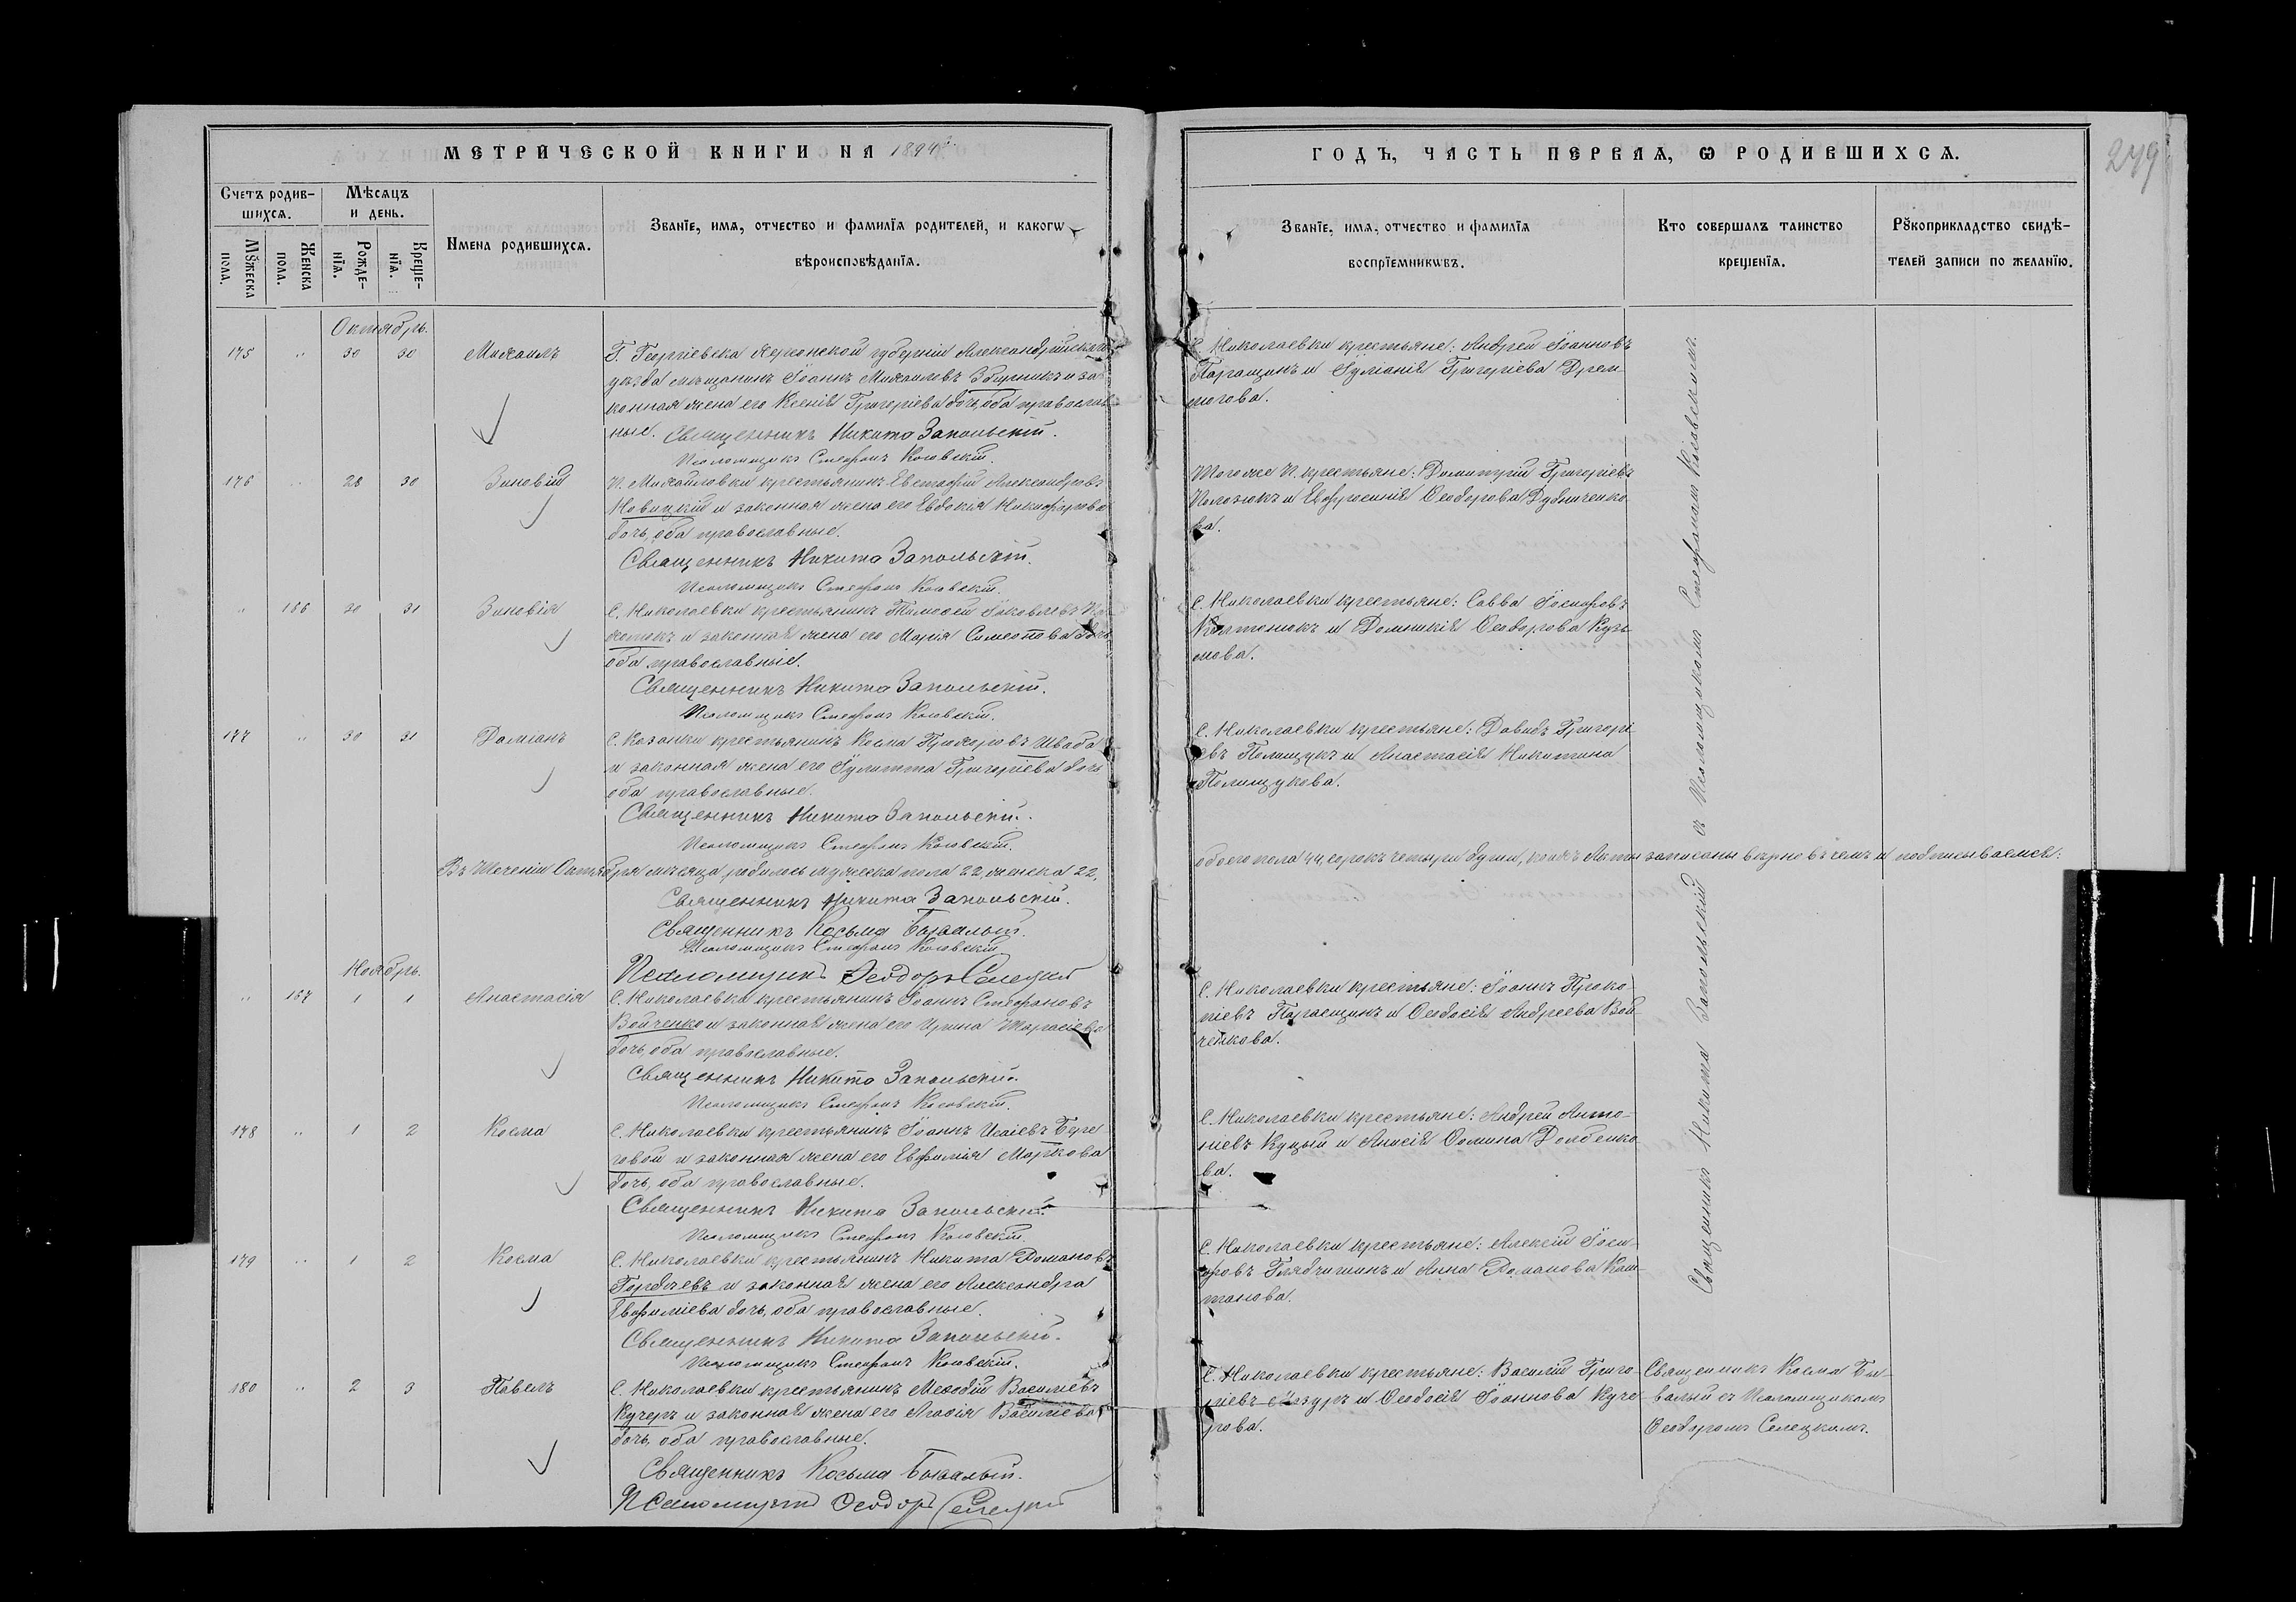 МЕТРИЧЕСКОЙ КНИГИ НА 1894й
ГОДЪ, ЧАСТЬ ПЕРВАЯ, Ѡ РОДИВШИХСЯ.
249
Счетъ родив-
шихся.
Мѣсяцъ
и день.
Мꙋжеска
пола.
Женска
пола.
Рожде-
нїя.
Креще-
нїя.
Имена родившихся.
Званїе, имя, отчество и фамилїя родителей, и какогѡ
вѣроисповѣданїя.
Званїе, имя, отчество и фамилїя
воспрїемникѡвъ.
Кто совершалъ таинство
крещенїя.
Рꙋкоприкладство свидѣ-
телей записи по желанїю.
Октябрь.
175 " 30 30 Михаилъ
Г. Георгіевска Херсонской губерніи Александрійскаго
уѣзда мѣщанинъ Іоаннъ Михаиловъ и за-
конная жена его Ксенія Григоріева дочь, оба православ-
ные. Священникъ Никита Запольскій.
Псаломщикъ Стефанъ Косовскій.
С. Николаевки крестьяне: Андрей Іоанновъ
Паращинъ и Іуліанія Григоріева Дрем-
люгова.
176 " 28 30 Зиновій
П. Михайловки крестьянинъ Евстафій Александровъ
Новицкій и законная жена его Евдокія Никифорова
дочь, оба православные.
Священникъ Никита Запольскій.
Псаломщикъ Стефанъ Косовскій.
Того же П. крестьяне: Димитрій Григоріевъ
Полозюкъ и Евфросинія Ѳеодорова Дубниченко-
ва.
" 166 30 31 Зиновія
С. Николаевки крестьянинъ Тимоѳей Іаковлевъ
и законная жена его Марія Симеонова дочь
оба православные.
Священникъ Никита Запольскій.
Псаломщикъ Стефанъ Косовскій.
С. Николаевки крестьяне: Савва Іосифовъ
Колтонюкъ и Домникія Ѳеодорова Кузь-
мова.
177 " 30 31 Даміанъ
С. Казанки крестьянинъ Косма Прохоровъ Швода
и законная жена его Іулитта Григоріева дочь
оба православные.
Священникъ Никита Запольскій.
Псаломщикъ Стефанъ Косовскій.
С. Николаевки крестьяне: Давидъ Григорі-
евъ Полищукъ и Анастасія Никитина
Полищукова.
Въ теченіи Октября мѣсяца родилось мужеска пола 22, женска 22,
обоего пола 44 сорокъ четыри души, коихъ Акты записаны вѣрно въ чемъ и подписываемся:
Священникъ Никита Запольскій.
Священникъ Косьма Бывалый.
Псаломщикъ Стефанъ Косовскій
Псаломщикъ Ѳеодоръ Селецкій
Ноябрь.
" 167 1 1 Анастасія
С. Николаевки крестьянинъ Іоаннъ Стефановъ
Войченко и законная жена его Ирина Тарасіева
дочь, оба православные.
Священникъ Никита Запольскій.
Псаломщикъ Стефанъ Косовскій.
С. Николаевки крестьяне: Іоаннъ Проко-
піевъ Паращинъ и Ѳеодосія Андреева Вой-
ченкова.
178 " 1 2 Косма
С. Николаевки крестьянинъ Іоаннъ Исаіевъ Бере-
говой и законная жена его Евфимія Маркова
дочь, оба православные.
Священникъ Никита Запольскій.
Псаломщикъ Стефанъ Косовскій.
С. Николаевки крестьяне: Андрей Анто-
ніевъ Куцый и Анисія Ѳомина Долбенко-
ва.
179 " 1 2 Косма
С. Николаевки крестьянинъ Никита Романовъ
Горбачевъ и законная жена его Александра
Евфиміева дочь, оба православные.
Священникъ Никита Запольскій.
Псаломщикъ Стефанъ Косовскій.
С. Николаевки крестьяне: Алексій Іоси-
фовъ и Анна Романова Каш-
танова.
180 " 2 3 Павелъ
С. Николаевки крестьянинъ Меѳодій Василіевъ
Кучеръ и законная жена его Агафія Василіева
дочь, оба православные.
Священникъ Косьма Бывалый.
Псаломщикъ Ѳеодоръ Селецкій
С. Николаевки крестьяне: Василій Григо-
ріевъ Мазуръ и Ѳеодосія Іоаннова Куче-
рова.
Священникъ Косма Бы-
валый съ Псаломщикомъ
Ѳеодоромъ Селецкимъ.
Священникъ Никита Запольскій съ Псаломщикомъ Стефаномъ Косовскимъ.